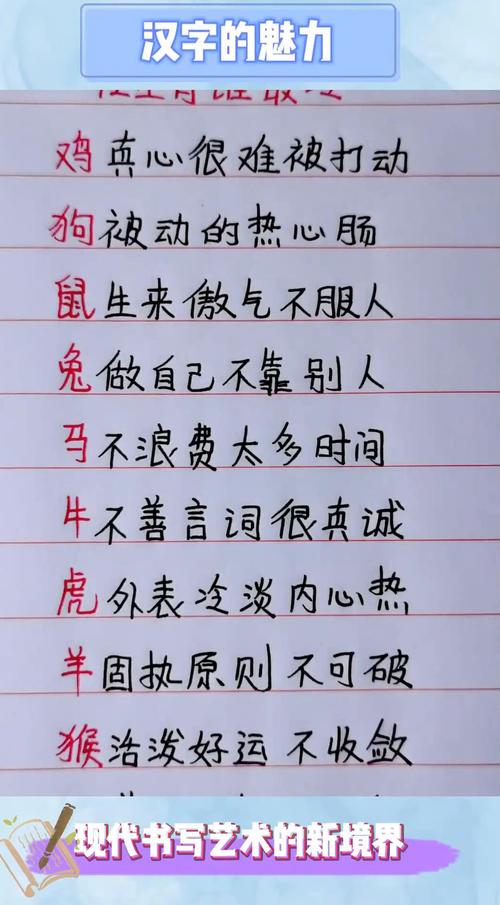 汉字的魅力
鸡真心很难被打动
狗被动的热心肠
鼠生来傲气不服人
兔做自己不靠别人
马不浪费太多时间
牛不善言词很真诚
虎外表冷淡内心热
羊固执原则不可破
猴活泼好运不收敛
现代书写艺术的新境界